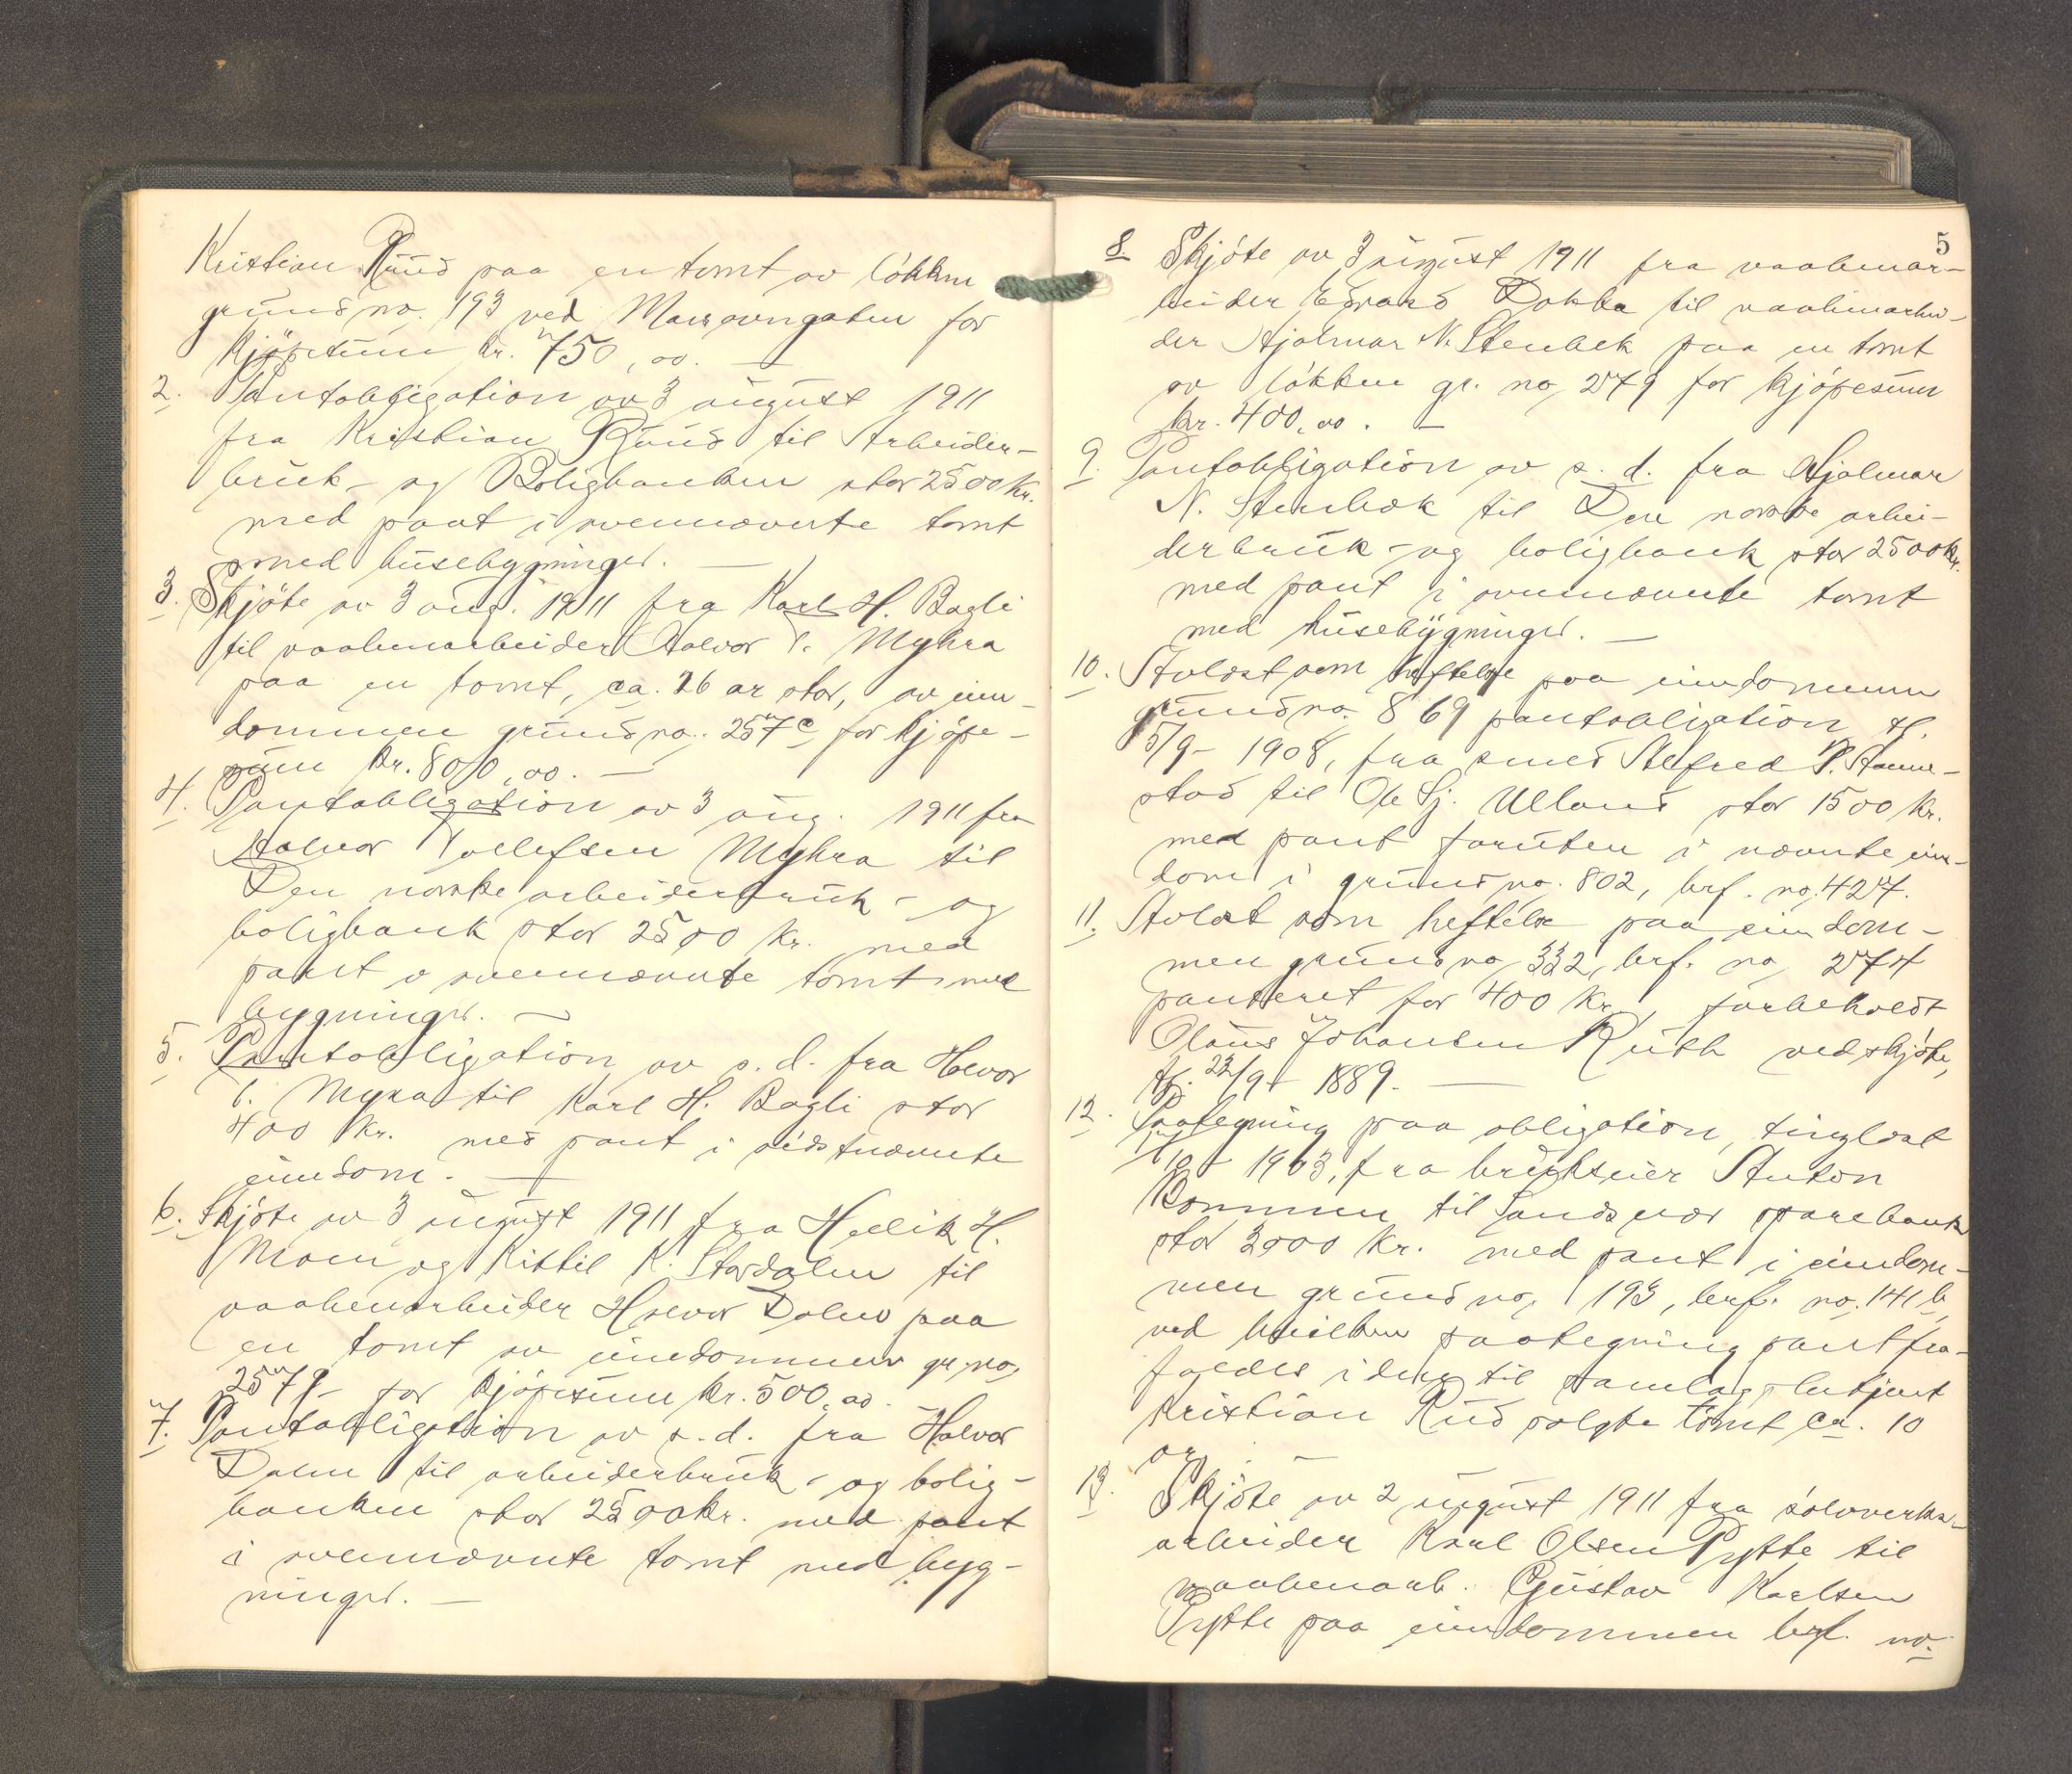 Kristian Ruud paa en tomt av løkken
grunds no. 193 ved Mansovngaten for
kjøpesum kr. 750,00. —
2. Pantobligation av 3 august 1911
fra Kristian Ruud til Arbeider-
bruk- og Boligbanken stor 2500 kr.
med pant i ovennævnte tomt
med husebygninger. —
3. Skjøte av 3 aug. 1911 fra Karl H. Bagli
til vaabenarbeider Halvor T. Myhra
paa en tomt, ca. 26 ar stor, av eien-
dommen grunds no. 257c, for kjøpe-
sum kr. 800,00. —
4. Pantobligation av 3 aug. 1911 fra
Halvor Tollefsen Myhra til
Den norske arbeiderbruk- og
boligbank stor 2500 kr. med
pant i ovennævnte tomt med
bygninger. —
5. Pantobligation av s. d. fra Halvor
T. Myra til Karl H. Bagli stor
400 kr. med pant i sidstnævnte
eiendom. —
6. Skjøte av 3 august 1911 fra Hellik H.
Moen og Kittil K. Stordalen til
vaabenarbeider Halvor Dalen paa
en tomt av eiendommen gr. no.
257g for kjøpesum kr. 500,00.
7. Pantobligation av s. d. fra Halvor
Dalen til arbeiderbruk- og bolig-
banken stor 2500 kr. med pant
i ovennævnte tomt med byg-
ninger. —
5
8 Skjøte av 3 august 1911 fra vaabenar-
beider Edvard Dokka til vaabenarbei-
der Hjalmar N. Stenbek paa en tomt
av løkken gr. no. 279 for kjøpesum
kr. 400,00. —
9. Pantobligation av s. d. fra Hjalmar
N. Stenbæk til Den norske arbei-
derbruk- og boligbank stor 2500 kr.
med pant i ovennævnte tomt
med husebygninger. —
10. Avlæst som heftelse paa eiendommen
grunds no. 869 pantobligation, tl.
15/9- 1908, fra smed Alfred P. Hanne-
stad til Ole Sj. Ulland stor 1500 kr.
med pant foruten i nævnte eien-
dom i grunds no. 802, brf. no. 427.
11. Avlæst som heftelse paa eiendom-
men grunds no 332, brf. no 274
panteret for 400 kr., forbeholdt
Olaus Johansen Ruth ved skjøte,
tl. 23/9- 1889. —
12. Paategning paa obligation, tinglæst
10- 1903, fra brukseier Anton
Rommen til Sandsvær sparebank
stor 3000 kr. med pant i eiendom-
men grunds no. 193, brf. no. 141b,
ved hvilken paategning pant fra-
faldes i den til samlagsbetjent
Kristian Rud solgte tomt ca. 10
ar. —
13. Skjøte av 2 august 1911 fra sølvverks-
arbeider Karl Olsen Pytte til
vaabenarb. Gustav Karlsen
Pytte paa eiendommen brf. no.